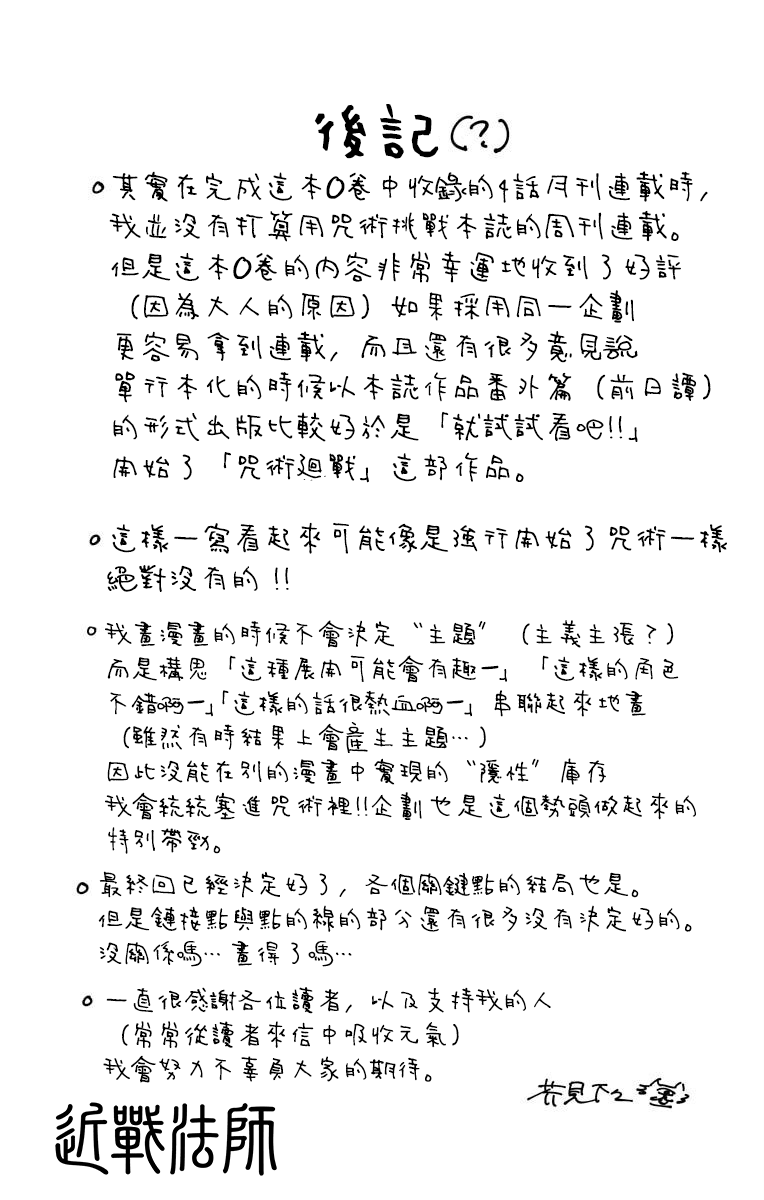 後記(?)
其實在完成這本0卷中收錄的4話月刊連載時,
我並沒有打算用咒術挑戰本誌的周刊連載。
但是這本0卷的內容非常幸運地收到了好評
(因為大人的原因)如果採用同一企劃
更容易拿到連載,而且還有很多意見說
單行本化的時候以本誌作品番外篇(前日譚)
的形式出版比較好於是「就試試看吧!!」
開始了「咒術廻戰」這部作品。
這樣一寫看起來可能像是強行開始了咒術一樣
絕對沒有的!!
我畫漫畫的時候不會決定“主題”(主義主張?)
而是構思「這種展開可能會有趣ー」「這樣的角色
不錯啊ー」「這樣的話很熱血啊ー」串聯起來地畫
(雖然有時結果上會產生主題…)
因此沒能在別的漫畫中實現的“隱性”庫存
我會統統塞進咒術裡!!企劃也是這個勢頭做起來的
特別帶勁。
最終回已經決定好了,各個關鍵點的結局也是。
但是鏈接點與點的線的部分還有很多沒有決定好的。
沒關係嗎…畫得了嗎…
一直很感謝各位讀者,以及支持我的人
(常常從讀者來信中吸收元氣)
我會努力不辜負大家的期待。
芥見下々
近戰法師